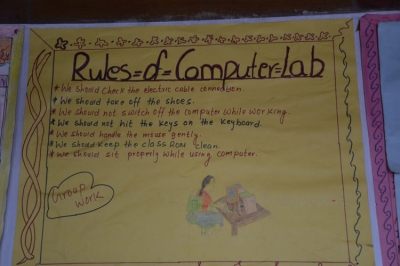 Rules=of=Computer=Lab
* We should check the electric cable connection.
* We should take off the shoes.
* We should not switch off the computer while working.
* We should not hit the keys on the keyboard.
* We should handle the mouse gently.
* We should keep the class Room clean.
* We should sit properly while using computer.
Group
work